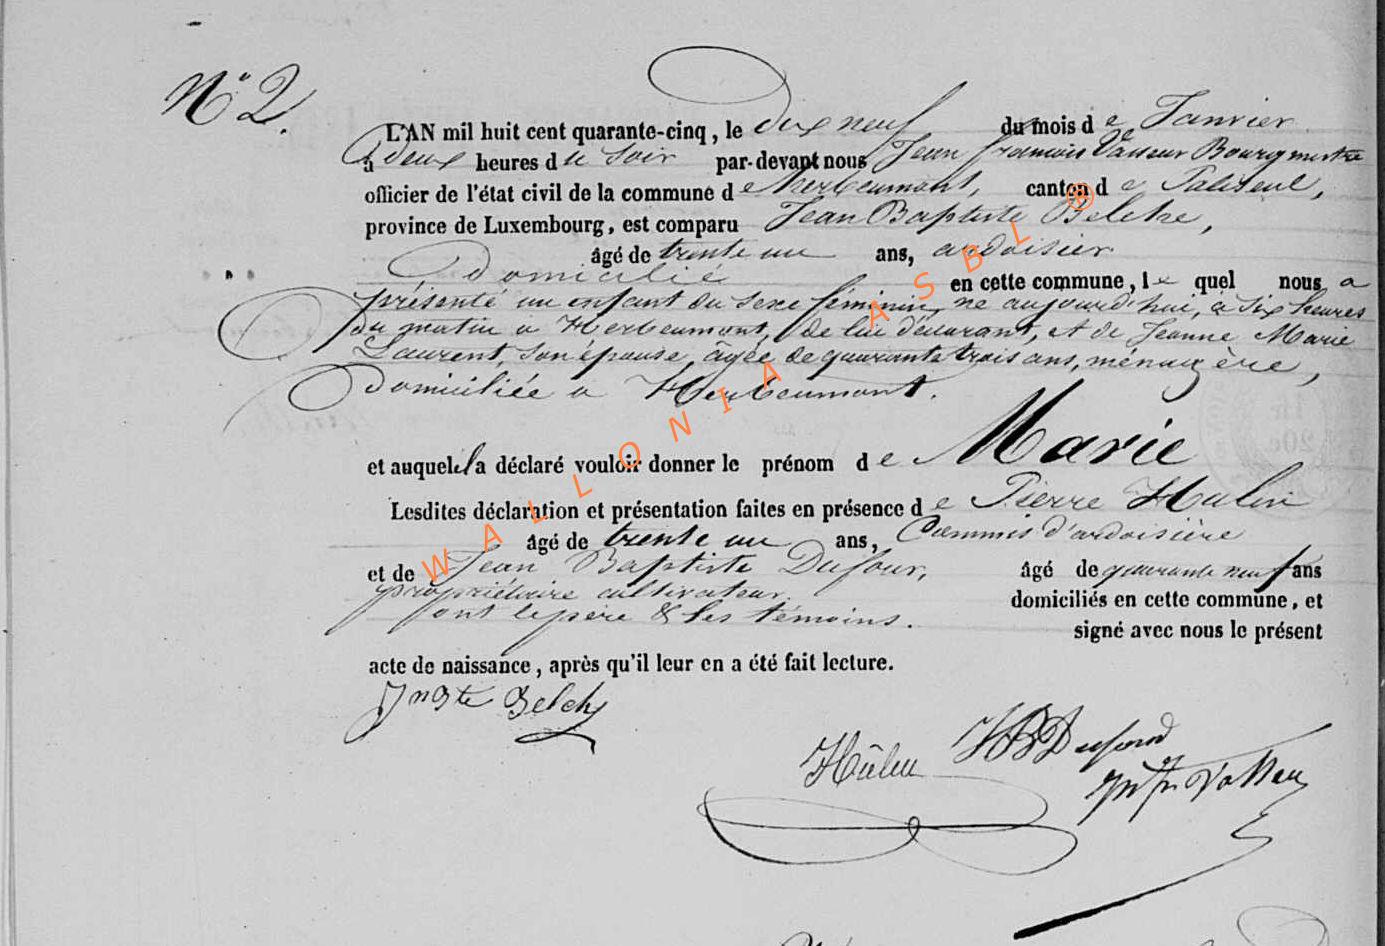 N° 2.
L'AN mil huit cent quarante-cinq, le dix neuf du mois de Janvier
à deux heures du soir par-devant nous Jean françois Vasseur Bourgmestre
officier de l'état civil de la commune de Herbeumont, canton de Paliseul,
province de Luxembourg, est comparu Jean Baptiste Belche,
âgé de trente un ans, ardoisier
domicilié en cette commune, le quel nous a
présenté un enfant du sexe féminin, né aujourd'hui, à six heures
du matin a Herbeumont, de lui déclarant, et de Jeanne Marie
Laurent, son épouse, âgée de quarante trois ans, ménagère,
domiciliée a Herbeumont.
et auquel il a déclaré vouloir donner le prénom de Marie
Lesdites déclaration et présentation faites en présence de Pierre Hulin
âgé de trente un ans, Commis d'ardoisière
et de Jean Baptiste Dufour, âgé de quarante neuf ans
propriétaire cultivateur. domiciliés en cette commune, et
ont le père & les témoins. signé avec nous le présent
acte de naissance, après qu'il leur en a été fait lecture.
Jn Bte Belche
Hulin
JB Dufour
Jn fs Vasseur
WALLONIA ASBL ®